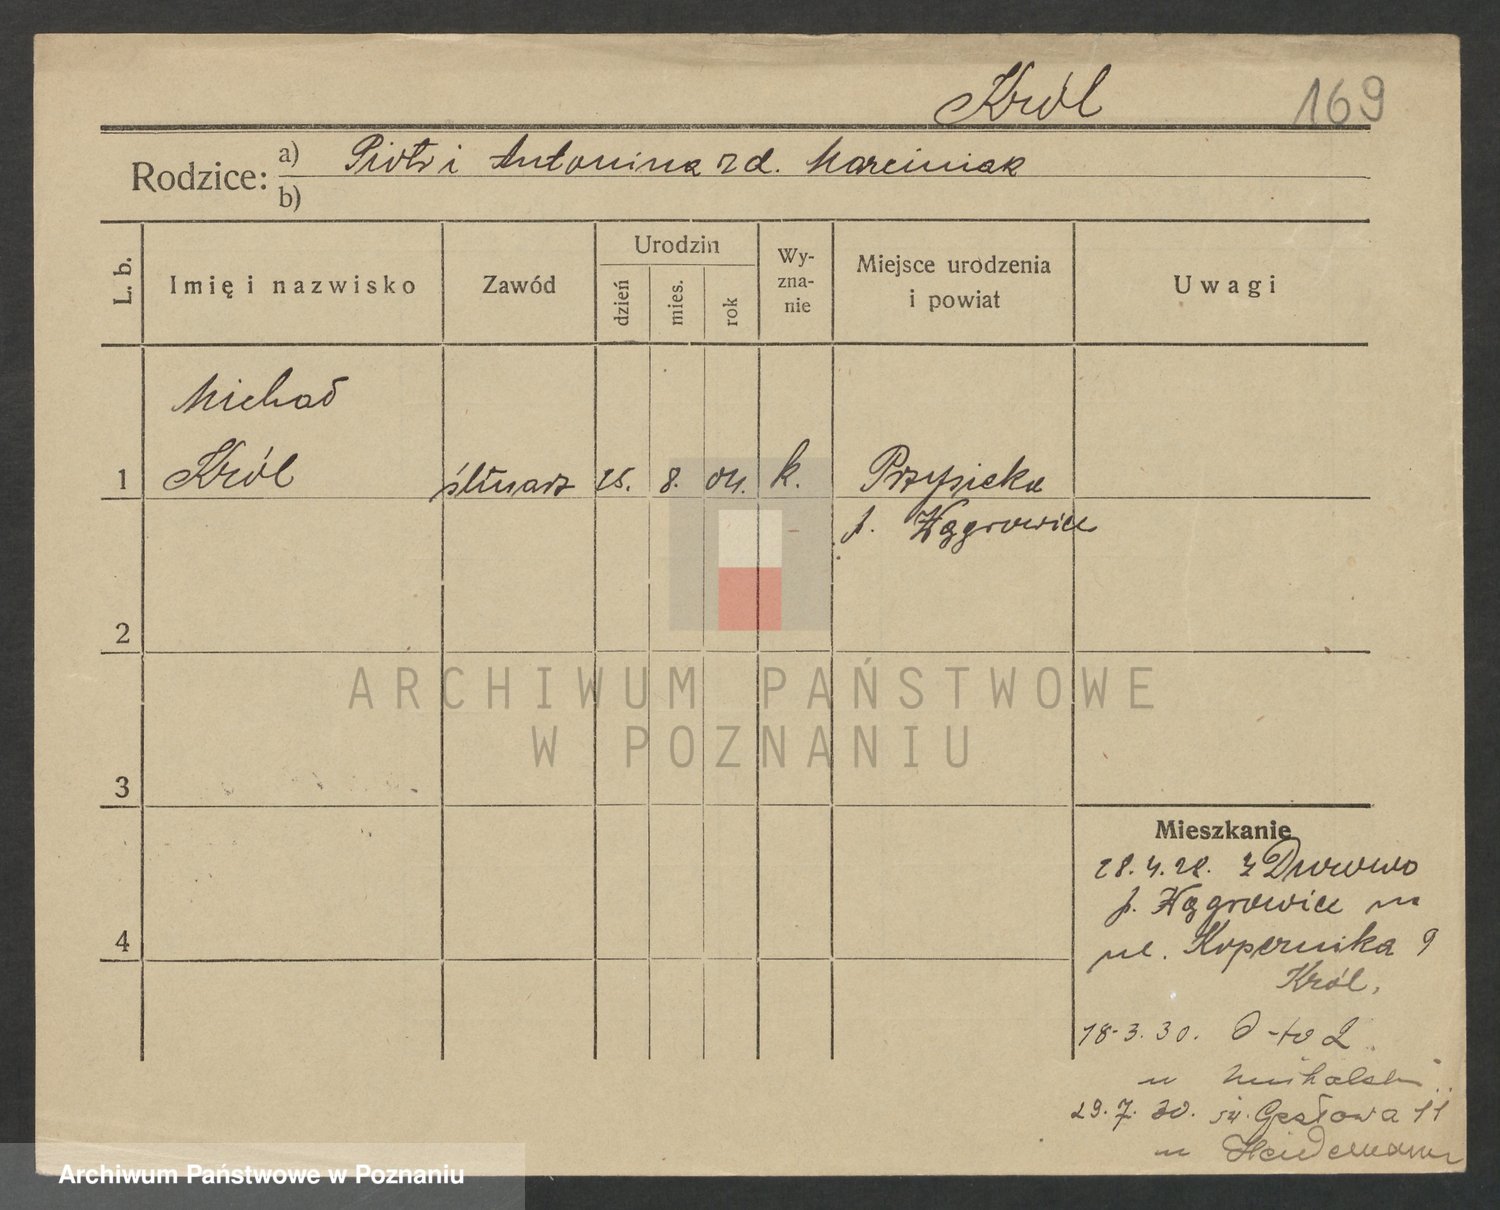 Król 169
Rodzice: a) Piotr i Antonina z d. Marciniak
b)
L. b. Imię i nazwisko Zawód Urodzin dzień mies. rok Wyznanie Miejsce urodzenia i powiat Uwagi
Michał
1 Król 8. 04. k. Przysieka
p. Wągrowice
2
ARCHIWUM PAŃSTWOWE
W POZNANIU
3
Mieszkanie
28.4.28. z Durowo
p. Wągrowice
4
ul. Kopernika 9
Król.
18-3.30.
29.7.30. 11
Archiwum Państwowe w Poznaniu